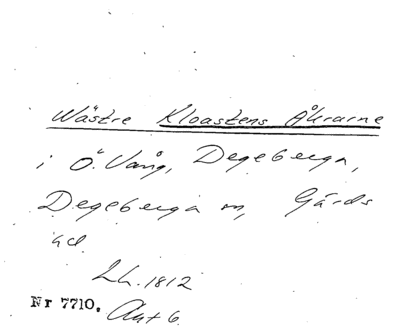 Wästre Kloastens Åkrarne
i Ö. Vång, Degeberga,
Degeberga sn, Gärds
hd
Lh. 1812
Nr 7710. Akt 6